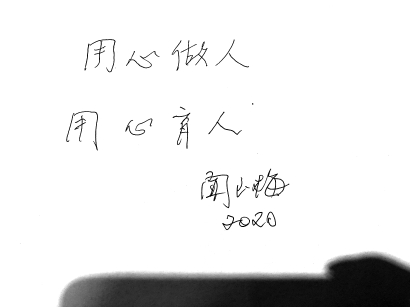 用心做人
用心育人
2020